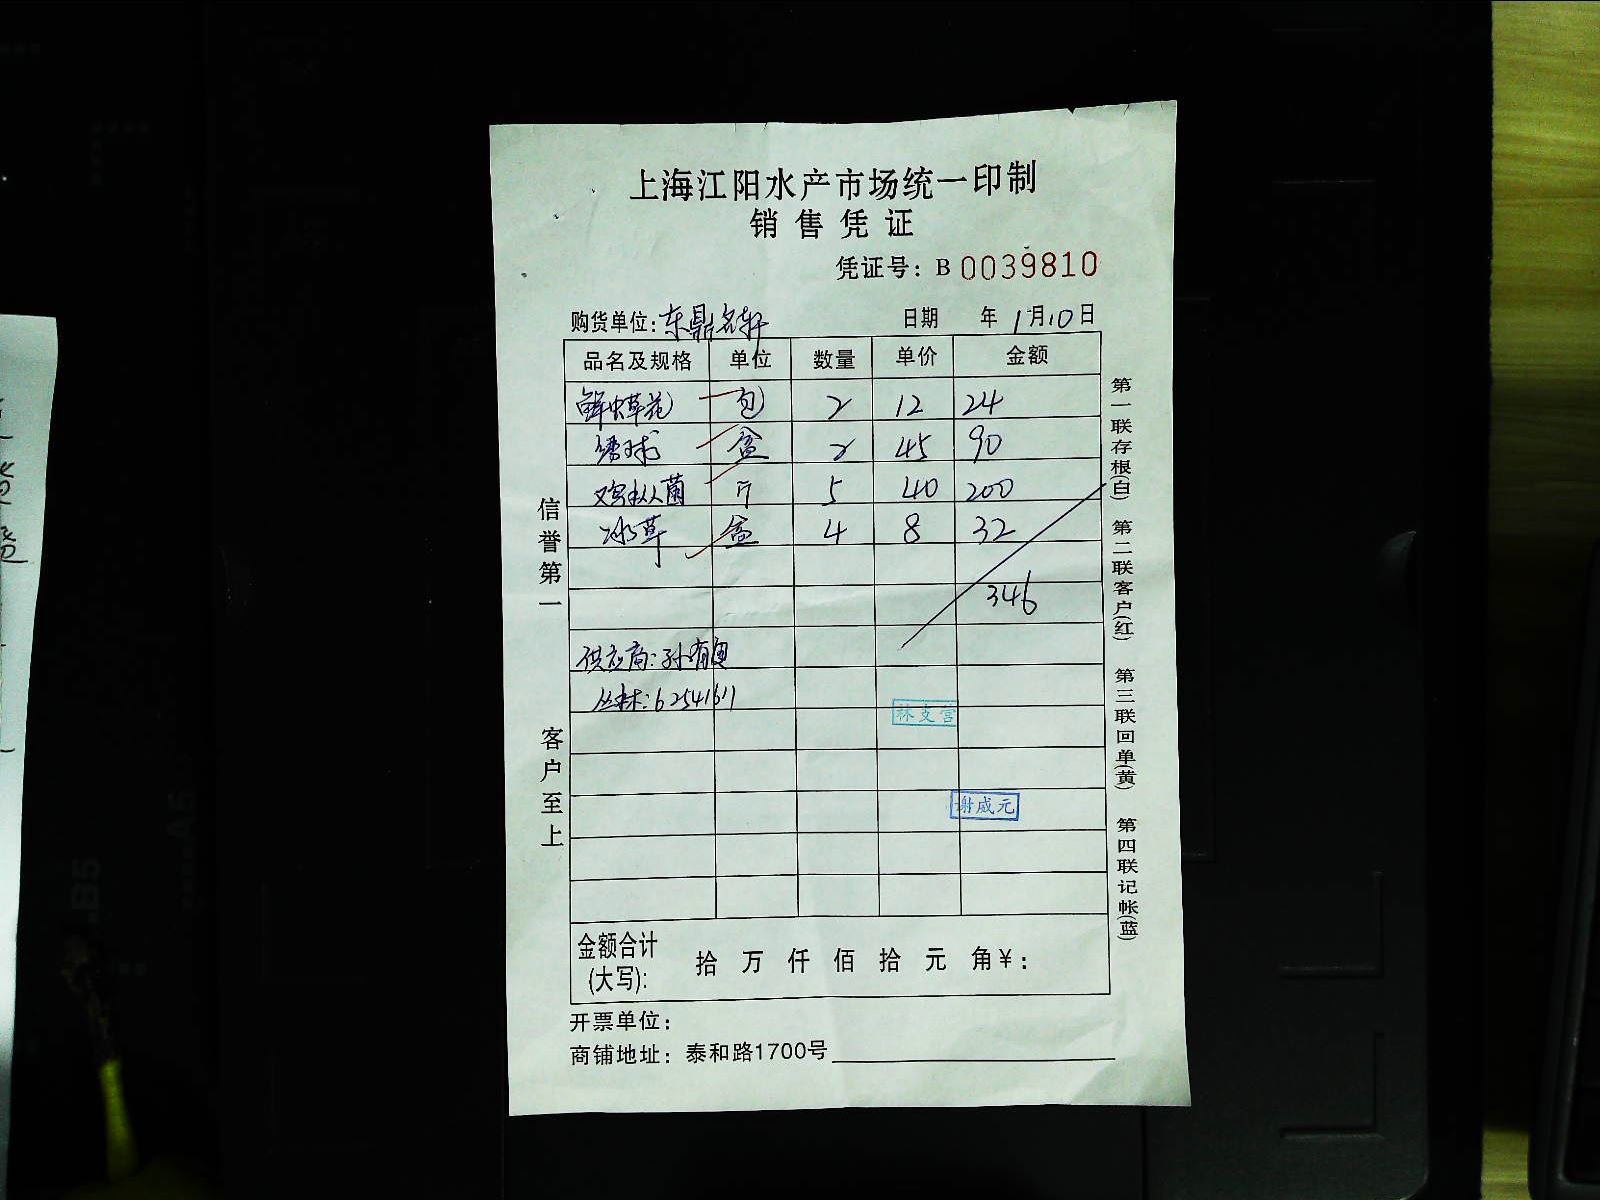 上海江阳水产市场统一印制
销售凭证
凭证号：B 0039810
购货单位：东鼎名轩 日期 年 1月10日
品名及规格 单位 数量 单价 金额
鲜虫草花 包 2 12 24
绣球 盒 2 45 90
鸡枞菌 斤 5 40 200
冰草 盒 4 8 32
346
供应商：孙
丛林：62541611
林支营
谢成元
金额合计
(大写): 拾 万 仟 佰 拾 元 角 ¥：
开票单位：
商铺地址：泰和路1700号
信誉第一
客户至上
第一联存根(白)
第二联客户(红)
第三联回单(黄)
第四联记帐(蓝)
B5